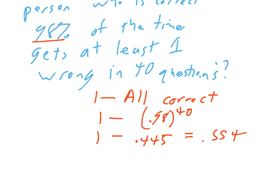 person who is correct
98% of the time
gets at least 1
wrong in 40 questions?
1 - All correct
1 - (.98)^40
1 - .445 = .554